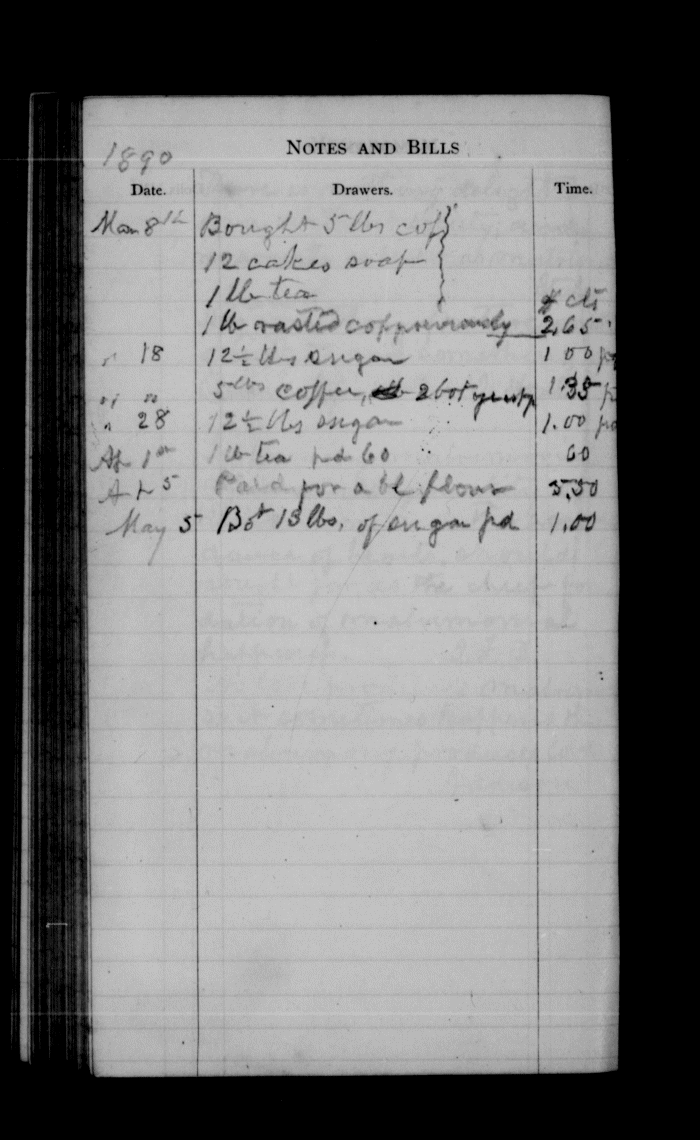 1890
NOTES AND BILLS
Date. Drawers. Time.
Mar 8th Bought 5 lbs cof
12 cakes soap
1 lb tea $ cts
1 lb roasted cof previously 2,65
" 18 12½ lbs sugar 1 00 pd
" " 5 lbs coffee, 2 bot 1.35 p
" 28 12½ lbs sugar 1.00 pd
Ap 1st 1 lb tea pd 60 60
Ap 5 Paid for a bl flour 5,50
May 5 Bot 13 lbs. of sugar pd 1,00